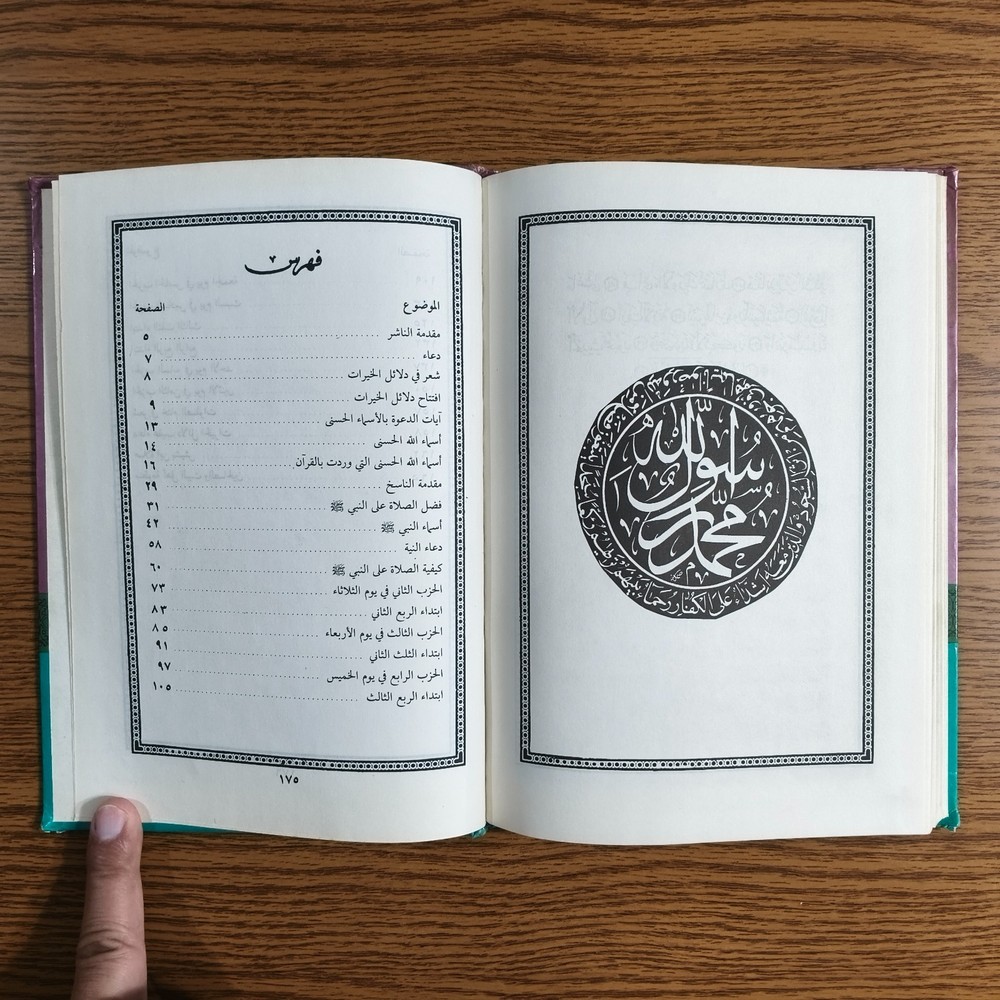 محمد رسول الله
فهرس
الموضوع الصفحة
مقدمة الناشر ٥
دعاء ٧
شعر في دلائل الخيرات ٨
افتتاح دلائل الخيرات ٩
آيات الدعوة بالأسماء الحسنى ١٣
أسماء الله الحسنى ١٤
أسماء الله الحسنى التي وردت بالقرآن ١٦
مقدمة الناسخ ٢٩
فضل الصلاة على النبي ﷺ ٣١
أسماء النبي ﷺ ٤٢
دعاء النية ٥٨
كيفية الصلاة على النبي ﷺ ٦٠
الحزب الثاني في يوم الثلاثاء ٧٣
ابتداء الربع الثاني ٨٣
الحزب الثالث في يوم الأربعاء ٨٥
ابتداء الثلث الثاني ٩١
الحزب الرابع في يوم الخميس ٩٧
ابتداء الربع الثالث ١٠٥
١٧٥